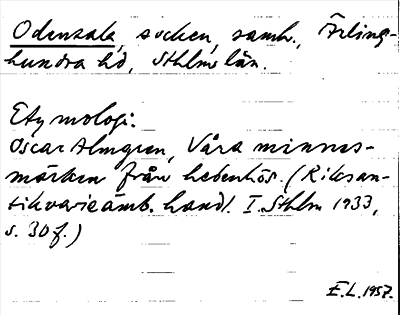 Odensala, socken, samh., Ärling-
hundra hd, Sthlms län.
Etymologi:
Oscar Almgren, Våra minnes-
märken från hedenhös. (Riksan-
tikvarieämb. handl. I. Sthlm 1933,
s. 30 f.)
E.L. 1957.